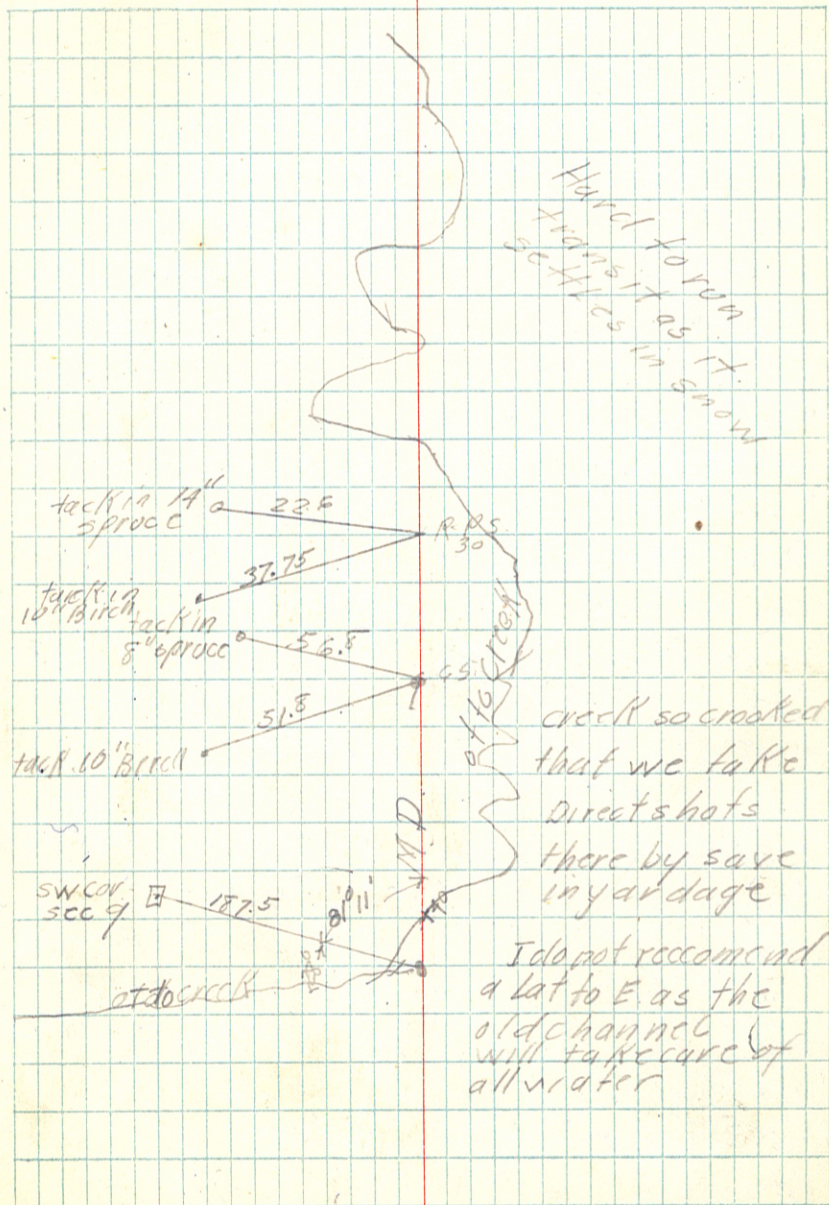 Hard to run
transit as it
settles in snow
tack in 14"
spruce
22.6
R.P.S.
30
37.75
tack in
10" Birch
tack in
8" spruce
56.8
51.8
tack 10" Birch
otto creek
creek so crooked
that we take
Direct shots
there by save
in yardage
M.D.
sw cor
sec 9
187.5
81° 11'
otto creek
I do not reccomend
a lat to E. as the
old channel
will take care of
all water